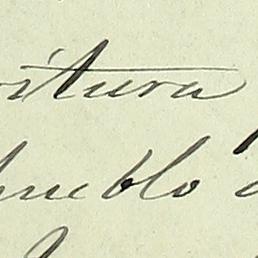 itura
pueblo